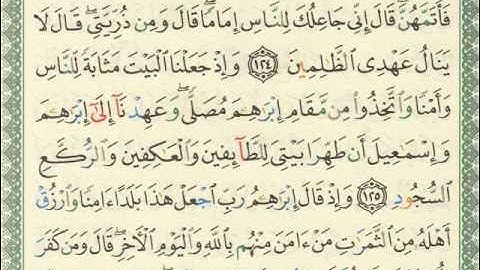 فَأَتَمَّهُنَّ قَالَ إِنِّى جَاعِلُكَ لِلنَّاسِ إِمَامًا ۖ قَالَ وَمِن ذُرِّيَّتِى ۖ قَالَ لَا
يَنَالُ عَهْدِى ٱلظَّـٰلِمِينَ ١٢٤ وَإِذْ جَعَلْنَا ٱلْبَيْتَ مَثَابَةً لِّلنَّاسِ
وَأَمْنًا وَٱتَّخِذُوا۟ مِن مَّقَامِ إِبْرَٰهِـۧمَ مُصَلًّى ۖ وَعَهِدْنَآ إِلَىٰٓ إِبْرَٰهِـۧمَ
وَإِسْمَـٰعِيلَ أَن طَهِّرَا بَيْتِىَ لِلطَّآئِفِينَ وَٱلْعَـٰكِفِينَ وَٱلرُّكَّعِ
ٱلسُّجُودِ ١٢٥ وَإِذْ قَالَ إِبْرَٰهِـۧمُ رَبِّ ٱجْعَلْ هَـٰذَا بَلَدًا ءَامِنًا وَٱرْزُقْ
أَهْلَهُۥ مِنَ ٱلثَّمَرَٰتِ مَنْ ءَامَنَ مِنْهُم بِٱللَّهِ وَٱلْيَوْمِ ٱلْـَٔاخِرِ ۖ قَالَ وَمَن كَفَرَ